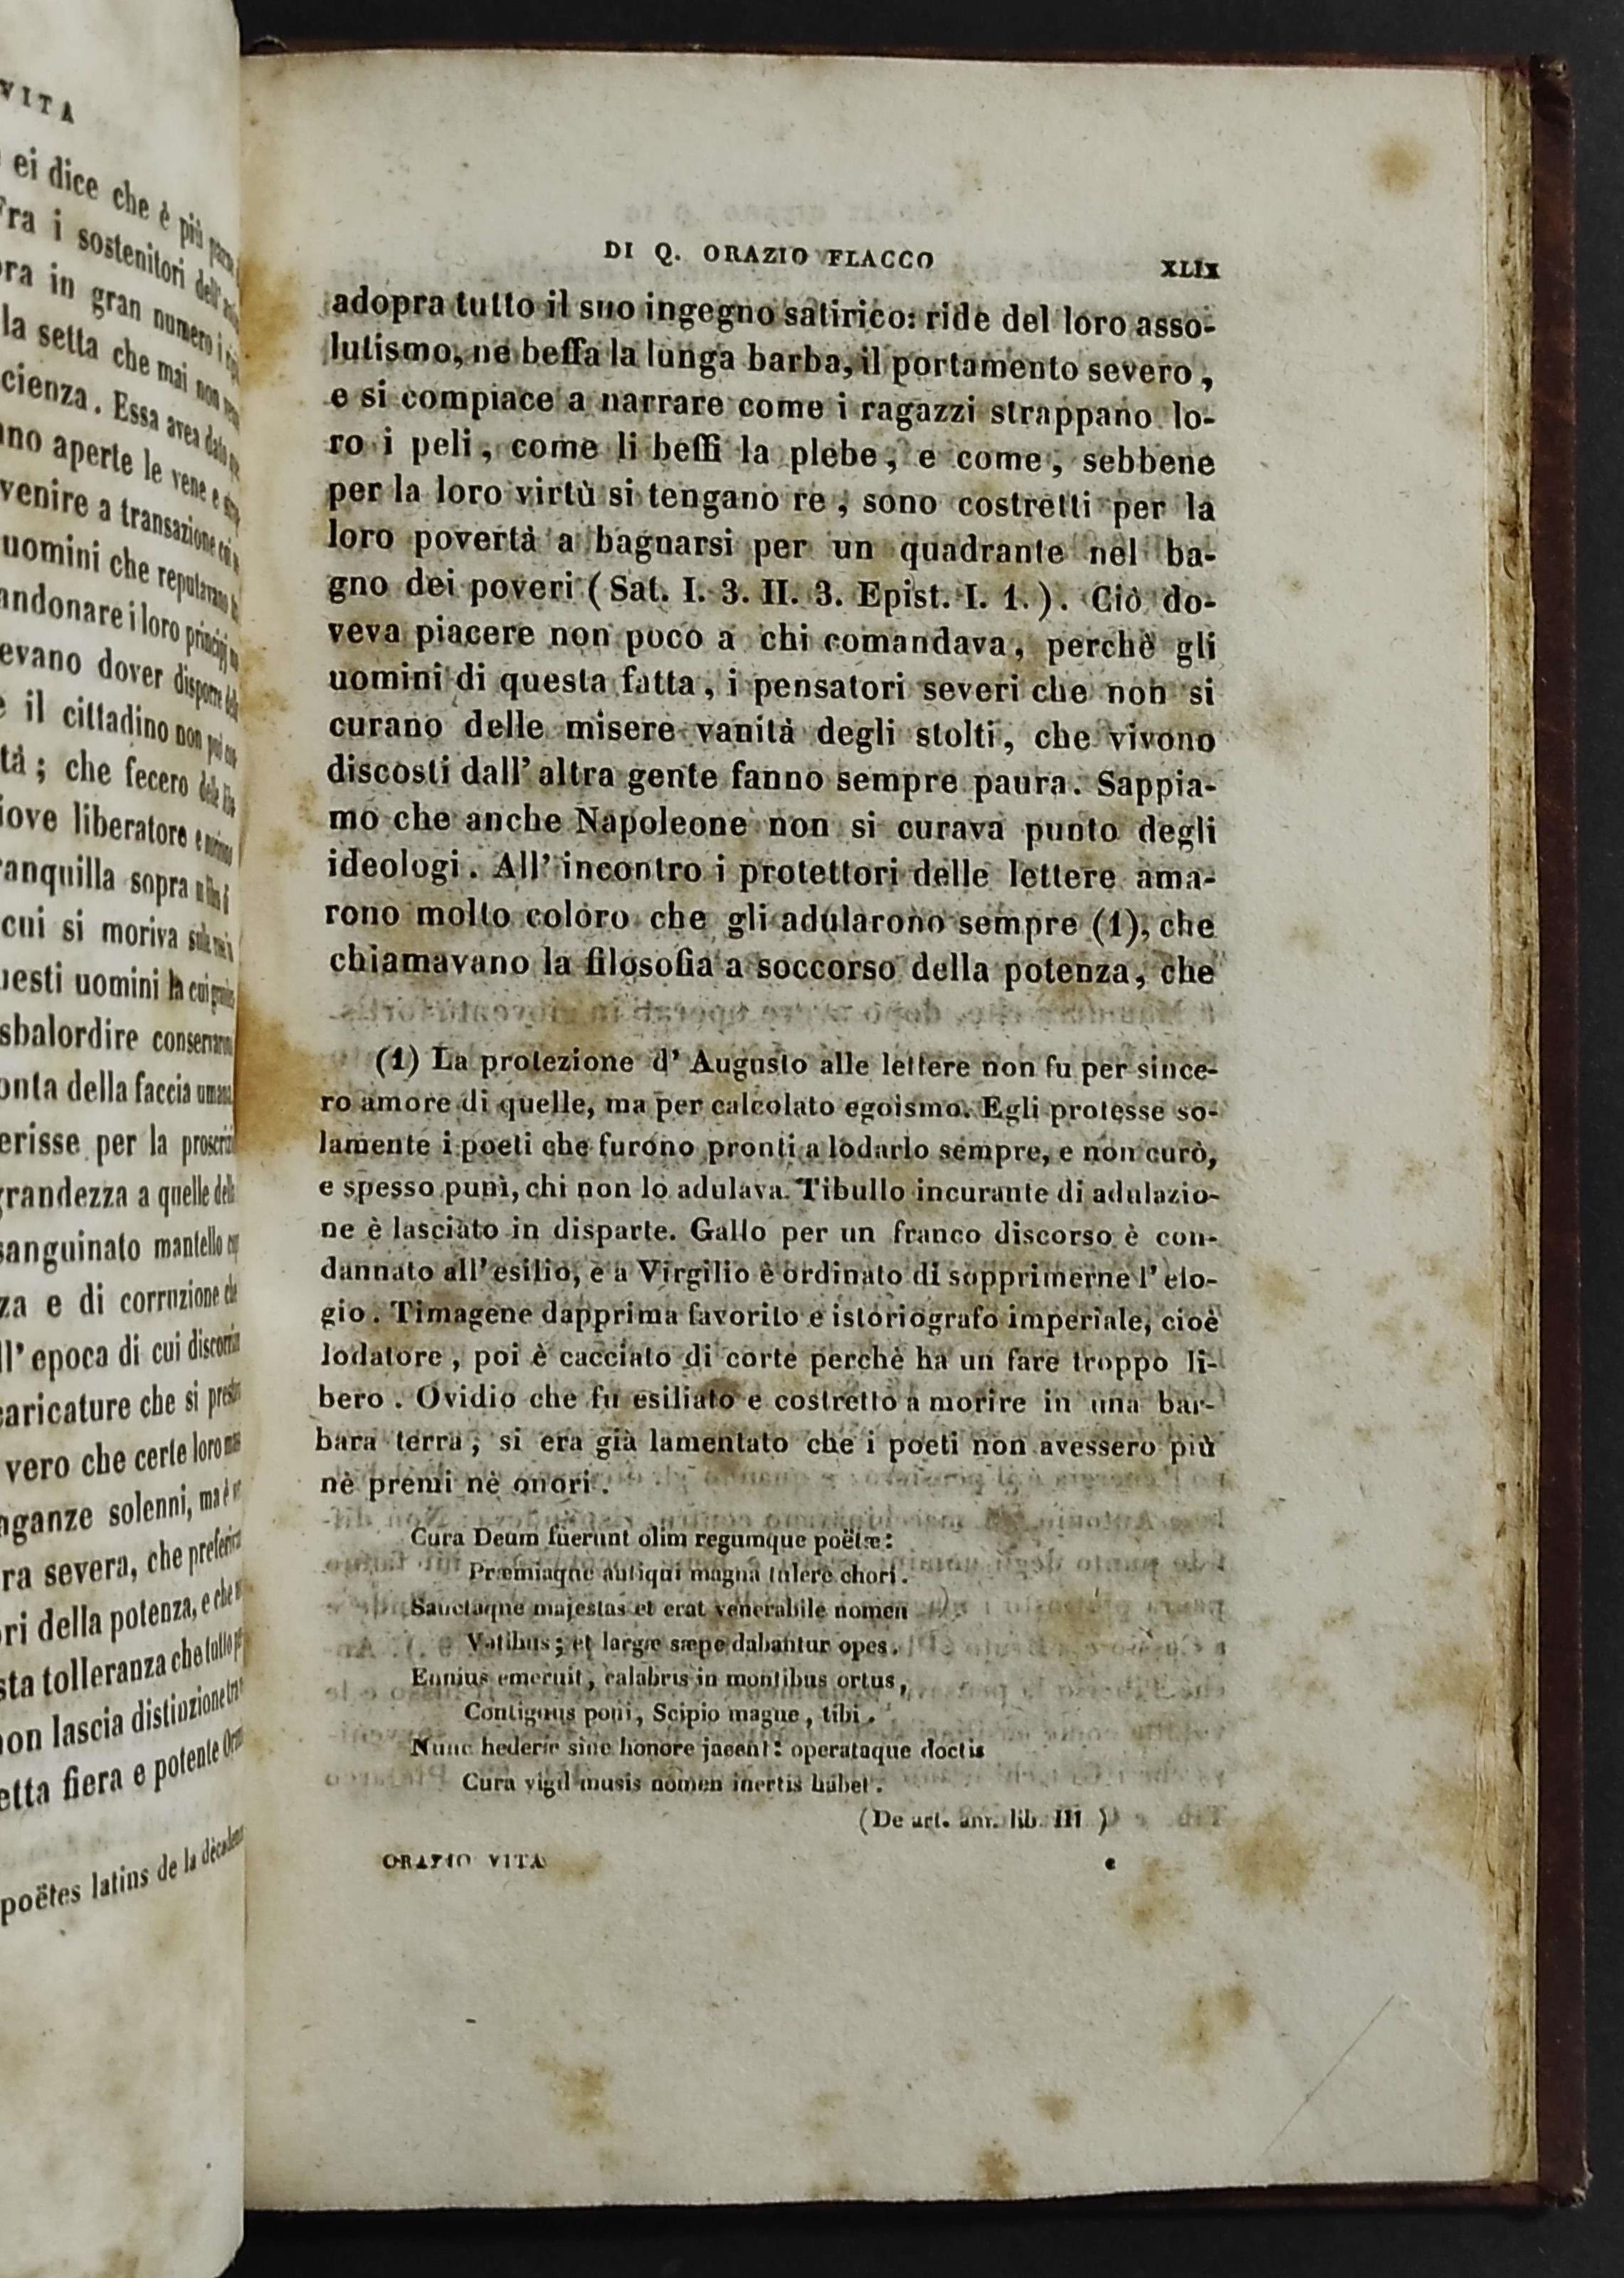 VITA
ei dice che è più
Fra i sostenitori dell'
ora in gran numero i
la setta che mai non
cienza. Essa avea dato
ano aperte le vene e
venire a transazione
uomini che reputavano
andonare i loro principj
evano dover disporre
e il cittadino non può
tà; che fecero delle
iove liberatore e
ranquilla sopra
cui si moriva
uesti uomini la cui
sbalordire conservaron
onta della faccia umana
erisse per la
grandezza a quelle
sanguinato mantello
za e di corruzione che
ll' epoca di cui
caricature che si
vero che certe loro
aganze solenni, ma è
ra severa, che
ri della potenza, e che
sta tolleranza che tutto
non lascia distinzione
etta fiera e potente
poëtes latins de la dècadence
DI Q. ORAZIO FLACCO XLIX
adopra tutto il suo ingegno satirico: ride del loro asso-
lutismo, ne beffa la lunga barba, il portamento severo,
e si compiace a narrare come i ragazzi strappano lo-
ro i peli, come li beffi la plebe, e come, sebbene
per la loro virtù si tengano re, sono costretti per la
loro povertà a bagnarsi per un quadrante nel ba-
gno dei poveri (Sat. I. 3. II. 3. Epist. I. 1.). Ciò do-
veva piacere non poco a chi comandava, perchè gli
uomini di questa fatta, i pensatori severi che non si
curano delle misere vanità degli stolti, che vivono
discosti dall' altra gente fanno sempre paura. Sappia-
mo che anche Napoleone non si curava punto degli
ideologi. All' incontro i protettori delle lettere ama-
rono molto coloro che gli adularono sempre (1), che
chiamavano la filosofia a soccorso della potenza, che
(1) La protezione d' Augusto alle lettere non fu per since-
ro amore di quelle, ma per calcolato egoismo. Egli protesse so-
lamente i poeti che furono pronti a lodarlo sempre, e non curò,
e spesso punì, chi non lo adulava. Tibullo incurante di adulazio-
ne è lasciato in disparte. Gallo per un franco discorso è con-
dannato all' esilio, e a Virgilio è ordinato di sopprimerne l' elo-
gio. Timagene dapprima favorito e istoriografo imperiale, cioè
lodatore, poi è cacciato di corte perchè ha un fare troppo li-
bero. Ovidio che fu esiliato e costretto a morire in una bar-
bara terra, si era già lamentato che i poeti non avessero più
nè premi nè onori.
Cura Deum fuerunt olim regumque poëtæ:
Præmiaque antiqui magna tulere chori.
Sanctaque majestas et erat venerabile nomen
Vatibus; et largæ sæpe dabantur opes.
Ennius emeruit, calabris in montibus ortus,
Contiguus poni, Scipio magne, tibi.
Nunc hederæ sine honore jacent: operataque doctis
Cura vigil musis nomen inertis habet.
(De art. am. lib. III )
ORAZIO VITA e